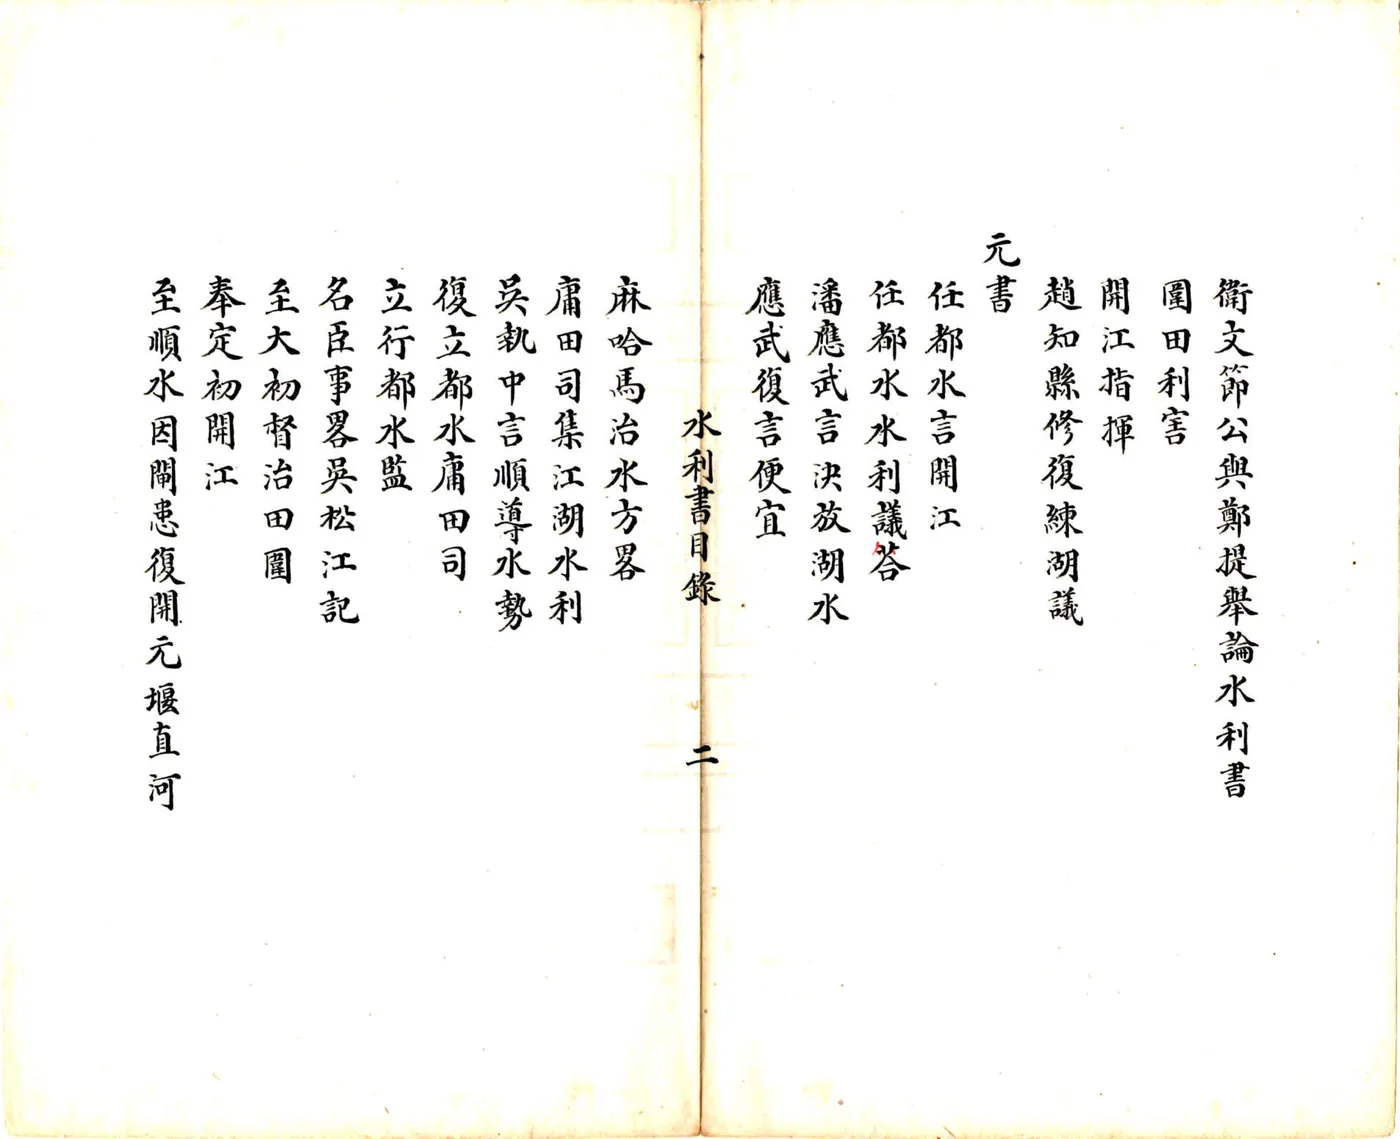 衛文節公與鄭提舉論水利書
圍田利害
開江指揮
趙知縣修復練湖議
元書
任都水言開江
任都水水利議荅
潘應武言決放湖水
應武復言便宜
水利書目錄 二
麻哈馬治水方畧
庸田司集江湖水利
吳執中言順導水勢
復立都水庸田司
立行都水監
名臣事畧吳松江記
至大初督治田圍
奉定初開江
至順水因閘患復開元堰直河